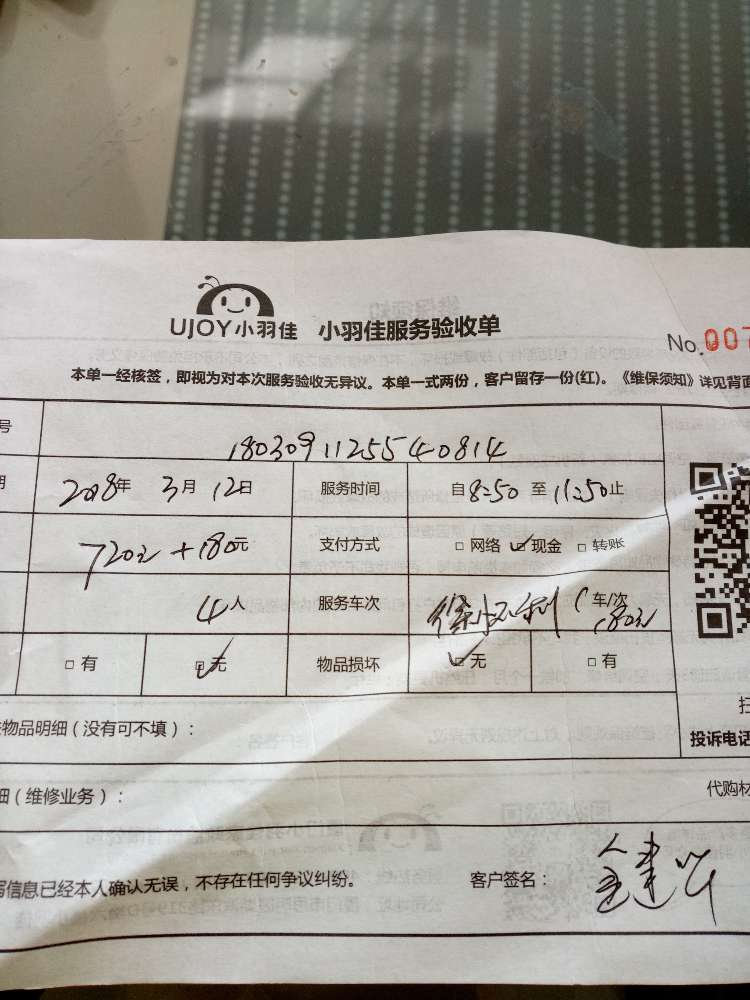 UJOY小羽佳 小羽佳服务验收单
No.007
本单一经核签，即视为对本次服务验收无异议。本单一式两份，客户留存一份(红)。《维保须知》详见背面
号 18030911255540814
期 2018年 3月 12日 服务时间 自8:50 至 11:50止
720元 + 180元 支付方式 □ 网络 ☑ 现金 □ 转账
4人 服务车次 1 车/次 180元
□ 有 ☑ 无 物品损坏 ☑ 无 □ 有
物品明细（没有可不填）：
投诉电话
细（维修业务）：
代购材
写信息已经本人确认无误，不存在任何争议纠纷。 客户签名：